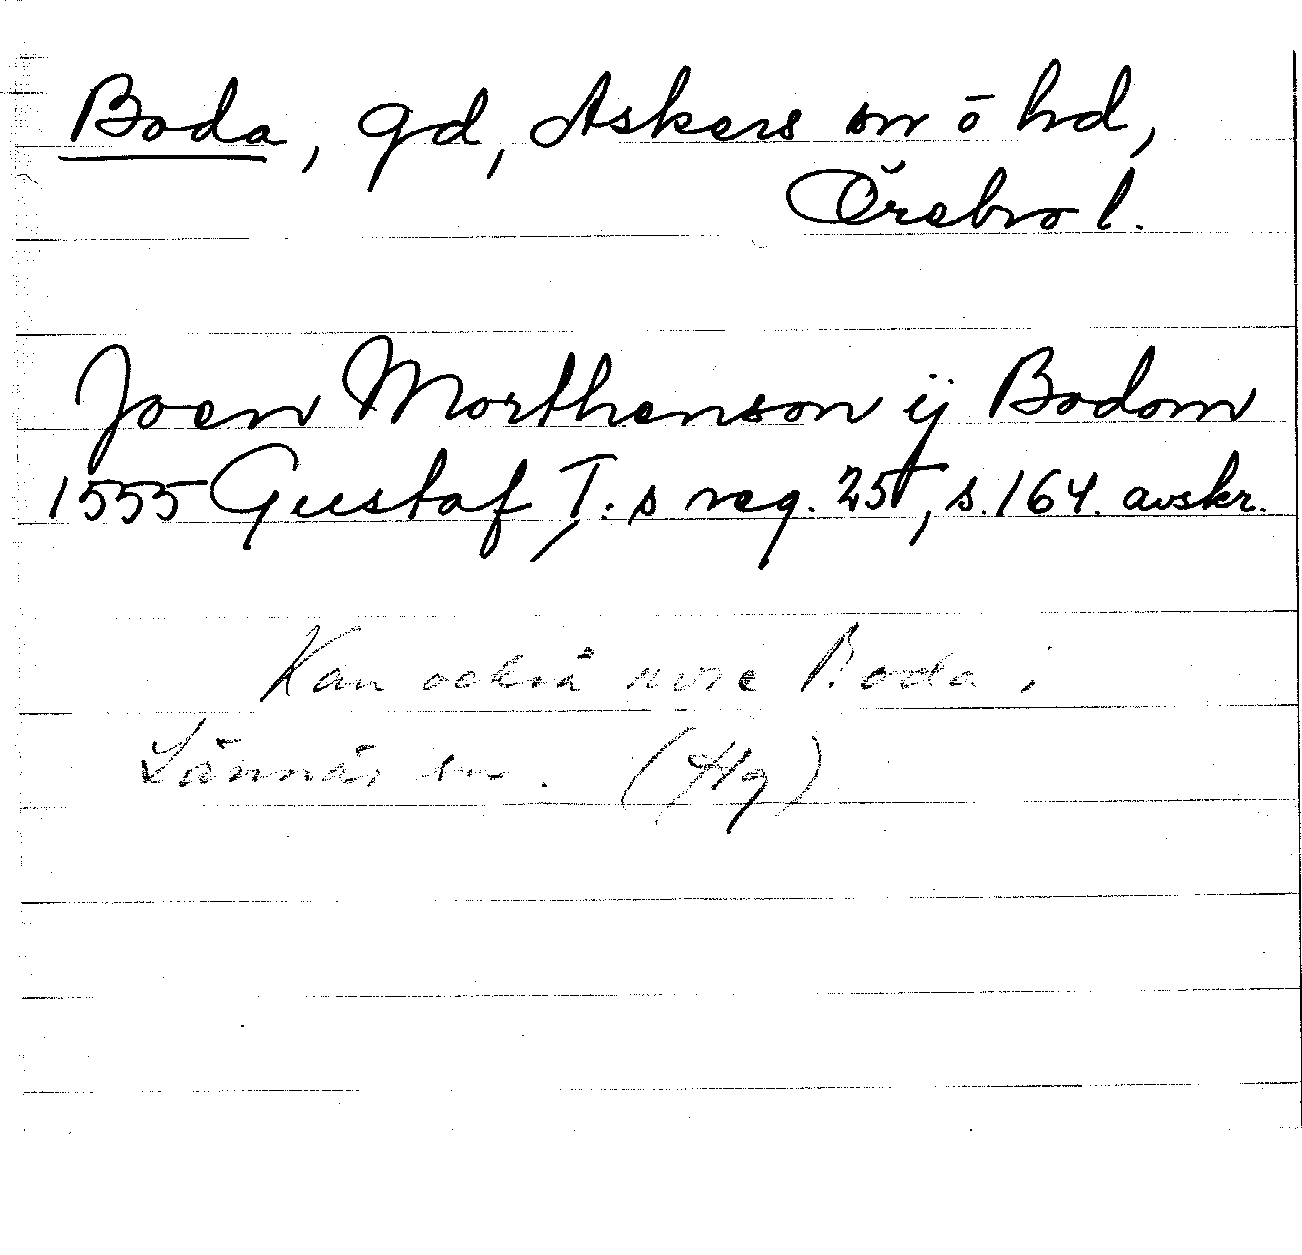 Boda, gd, Askers sn o hd,
Örebro l.
Joen Morthenson ij Bodom
1555 Gustaf I:s reg. 25, s. 164. avskr.
Kan också vara Boda i
Lännäs sn. (Hg)